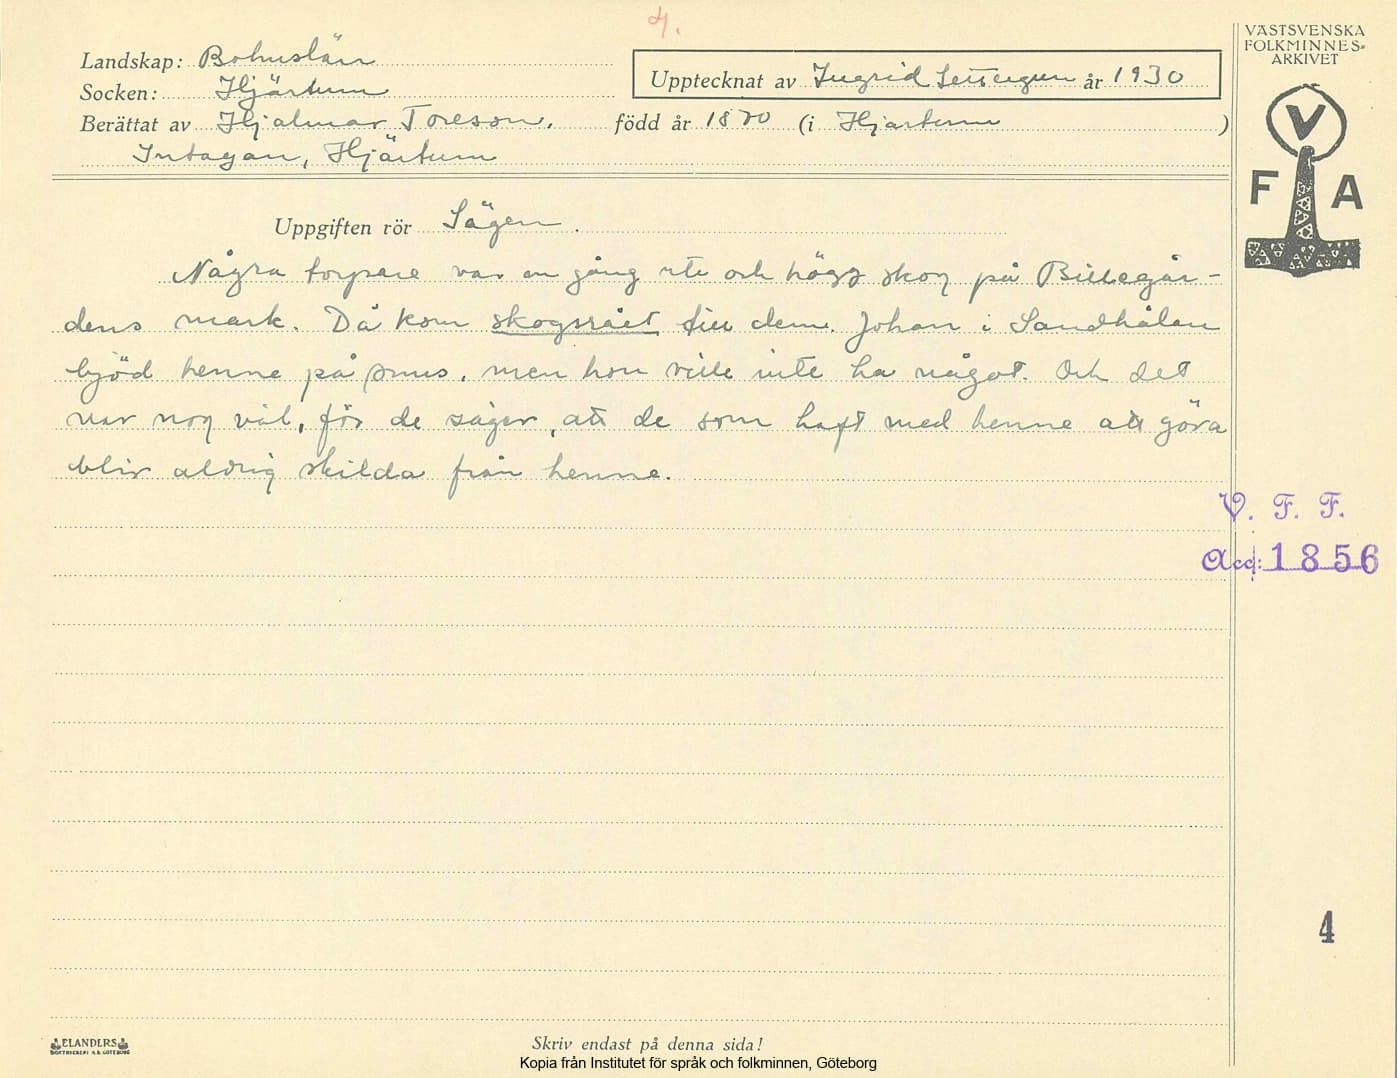 4.
Landskap: Bohuslän
Socken: Hjärtum
Upptecknat av Ingrid år 1930
Berättat av Hjalmar Toreson. född år 1870 (i Hjärtum )
Intagan, Hjärtum
Uppgiften rör Sägen.
Några torpare var en gång ute och högg skog på Billegår-
dens mark. Då kom skogsrået till dem. Johan i Sandhålan
bjöd henne på snus, men hon ville inte ha något. Och det
var nog väl, för de säger, att de som haft med henne att göra
blir aldrig skilda från henne.
VÄSTSVENSKA
FOLKMINNES-
ARKIVET
V
F A
V. F. F.
Acc: 1856
4
ELANDERS
BOKTRYCKERI A.B. GÖTEBORG
Skriv endast på denna sida!
Kopia från Institutet för språk och folkminnen, Göteborg